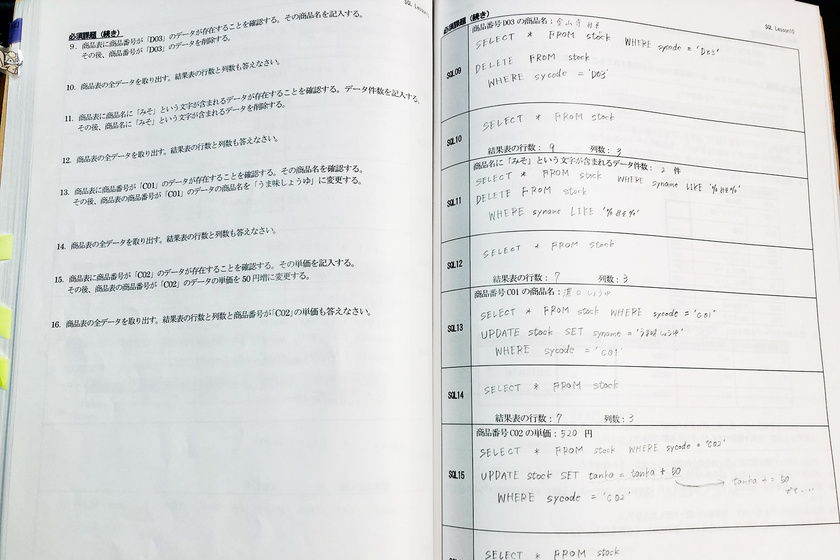 SQL Lesson10
必須課題（続き）
9. 商品表に商品番号が「D03」のデータが存在することを確認する。その商品名を記入する。
その後、商品番号が「D03」のデータを削除する。
10. 商品表の全データを取り出す。結果表の行数と列数も答えなさい。
11. 商品表に商品名に「みそ」という文字が含まれるデータが存在することを確認する。データ件数を記入する。
その後、商品名に「みそ」という文字が含まれるデータを削除する。
12. 商品表の全データを取り出す。結果表の行数と列数も答えなさい。
13. 商品表に商品番号が「C01」のデータが存在することを確認する。その商品名を確認する。
その後、商品表の商品番号が「C01」のデータの商品名を「うま味しょうゆ」に変更する。
14. 商品表の全データを取り出す。結果表の行数と列数も答えなさい。
15. 商品表に商品番号が「C02」のデータが存在することを確認する。その単価を記入する。
その後、商品表の商品番号が「C02」のデータの単価を50円増に変更する。
16. 商品表の全データを取り出す。結果表の行数と列数と商品番号が「C02」の単価も答えなさい。
SQL Lesson10
必須課題（続き）
商品番号 D03 の商品名：金山寺
SELECT * FROM stock WHERE sycode = 'D03'
SQL09
DELETE FROM stock
WHERE sycode = 'D03'
SQL10
SELECT * FROM stock
結果表の行数：9 列数：3
商品名に「みそ」という文字が含まれるデータ件数：2 件
SELECT * FROM stock WHERE syname LIKE '%みそ%'
SQL11
DELETE FROM stock
WHERE syname LIKE '%みそ%'
SQL12
SELECT * FROM stock
結果表の行数：7 列数：3
商品番号 C01 の商品名：濃口しょうゆ
SELECT * FROM stock WHERE sycode = 'C01'
SQL13
UPDATE stock SET syname = 'うま味しょうゆ'
WHERE sycode = 'C01'
SQL14
SELECT * FROM stock
結果表の行数：7 列数：3
商品番号 C02 の単価：520 円
SELECT * FROM stock WHERE sycode = 'C02'
SQL15
UPDATE stock SET tanka = tanka + 50
tanka += 50
WHERE sycode = 'C02'
SELECT * FROM stock